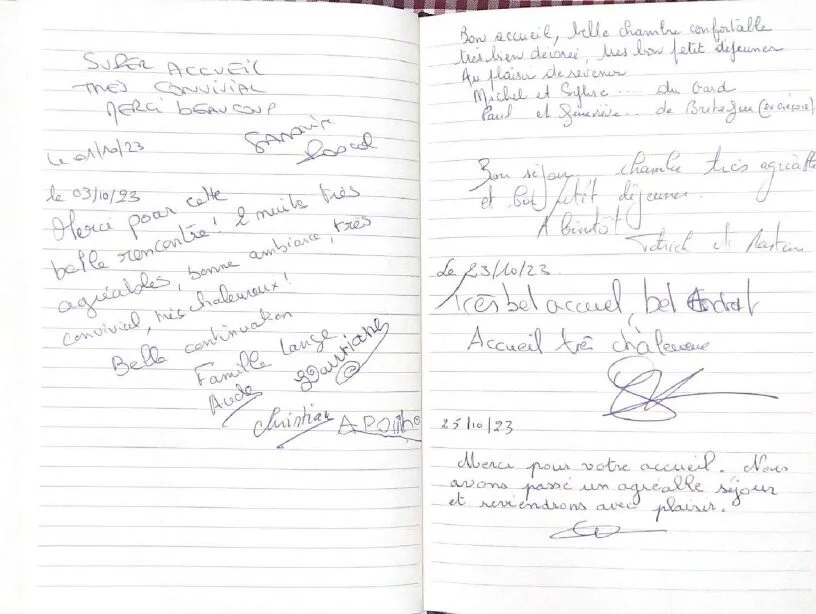 SUPER ACCUEIL
TRES CONVIVIAL
MERCI BEAUCOUP
Le 01/10/23
Pascal
le 03/10/23
Merci pour cette
belle rencontre! 2 nuits très
agréables, bonne ambiance, très
convivial, très chaleureux!
Belle continuation
Famille Lange
Aude
Christian
Bon accueil, belle chambre confortable
très bien décorée, très bon petit déjeuner
Au plaisir de revenir
Michel et Sylvie... du Gard
Paul et Geneviève... de Bretagne
Bon séjour chambre très agréable
et bon petit déjeuner.
A bientôt
Patrick et
Le 23/10/23.
Très bel accueil, bel Endroit
Accueil très chaleureux
25/10/23
Merci pour votre accueil. Nous
avons passé un agréable séjour
et reviendrons avec plaisir.